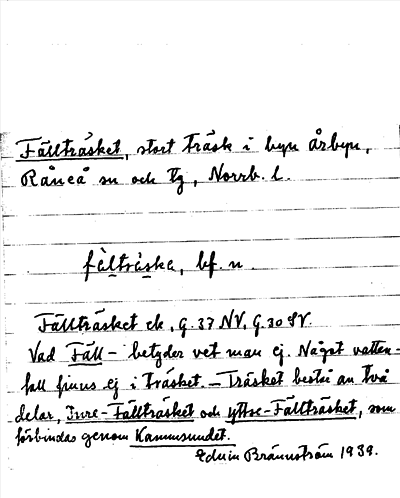 Fällträsket, stort träsk i byn Årbyn,
Råneå sn och tg, Norrb. l.
fäl̬träska, bf. n.
Fällträsket ek. G. 37 NV, G. 30 SV.
Vad Fäll- betyder vet man ej. Något vatten-
fall finns ej i träsket. – Träsket består av två
delar, Inre-Fällträsket och yttre-Fällträsket, som
förbindas genom Kammsundet.
Edvin Brännström 1939.